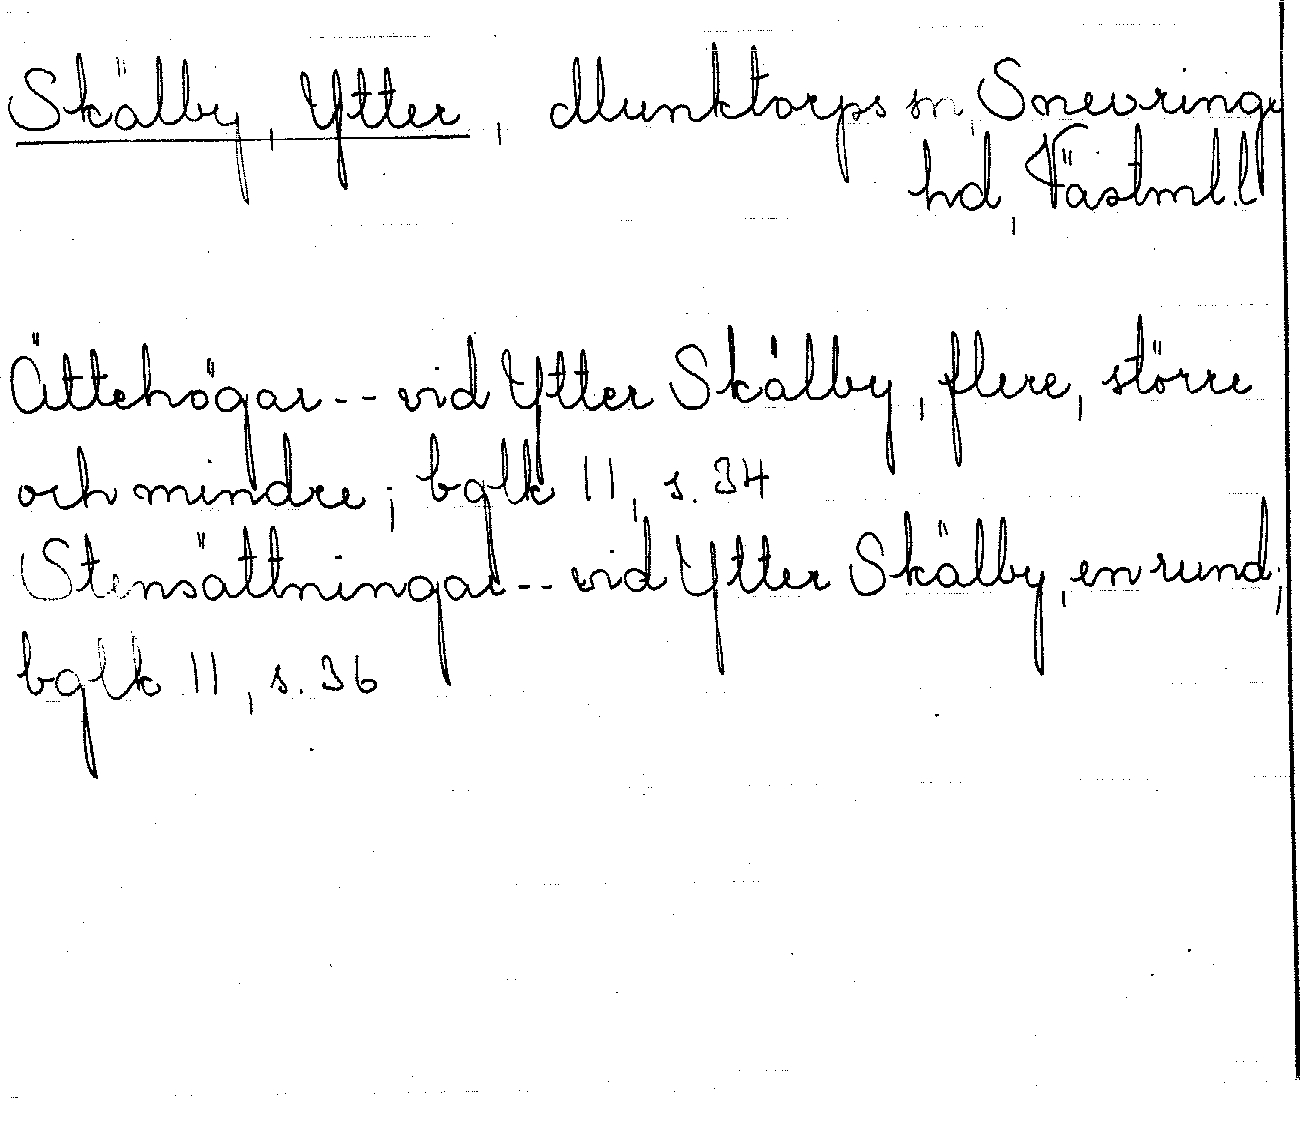 Skälby, Ytter, Munktorps sn, Snevringe
hd, Västml.l
Ättehögar -- vid Ytter Skälby, flere, större
och mindre; bglk 11, s. 34
Stensättningar -- vid Ytter Skälby, en rund;
bglk 11, s. 36